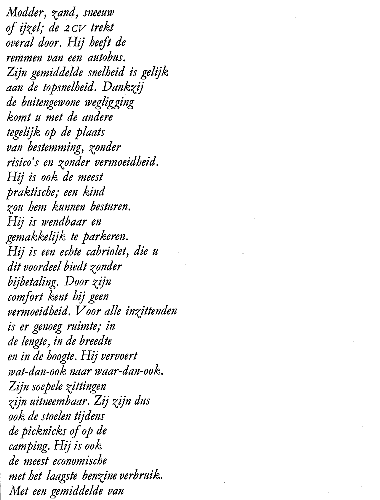 Modder, zand, sneeuw
of ijzel; de 2 CV trekt
overal door. Hij heeft de
remmen van een autobus.
Zijn gemiddelde snelheid is gelijk
aan de topsnelheid. Dankzij
de buitengewone wegligging
komt u met de andere
tegelijk op de plaats
van bestemming, zonder
risico's en zonder vermoeidheid.
Hij is ook de meest
praktische; een kind
zou hem kunnen besturen.
Hij is wendbaar en
gemakkelijk te parkeren.
Hij is een echte cabriolet, die u
dit voordeel biedt zonder
bijbetaling. Door zijn
comfort kent hij geen
vermoeidheid. Voor alle inzittenden
is er genoeg ruimte; in
de lengte, in de breedte
en in de hoogte. Hij vervoert
wat-dan-ook naar waar-dan-ook.
Zijn soepele zittingen
zijn uitneembaar. Zij zijn dus
ook de stoelen tijdens
de picknicks of op de
camping. Hij is ook
de meest economische
met het laagste benzine verbruik.
Met een gemiddelde van